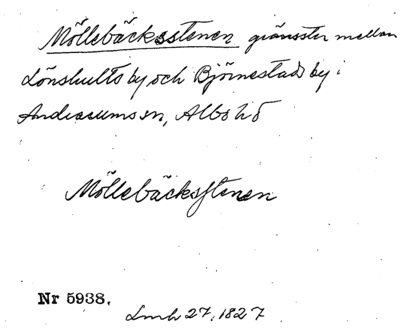 Möllebäcksstenen gränssten mellan
Lönshults by och Björnestads by i
Andrarums sn, Albo hd
Möllebäcksstenen
Nr 5938.
Lmh 27, 1827